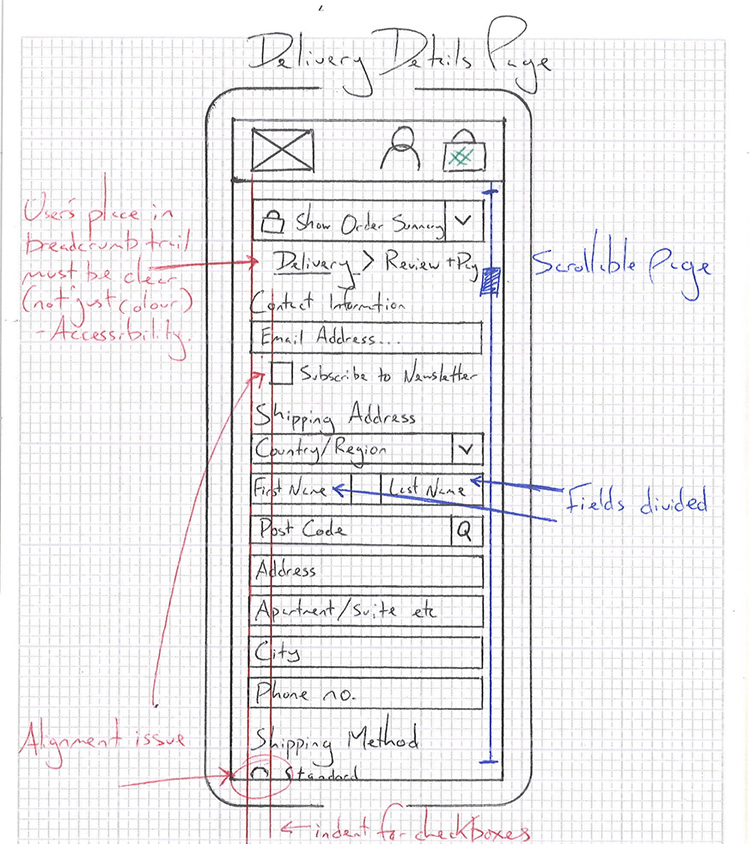 Delivery Details Page
Show Order Summary
User's place in
breadcrumb trail
must be clear
(not just colour)
- Accessibility.
Delivery > Review + Pay
Scrollable Page
Contact Information
Email Address...
Subscribe to Newsletter
Shipping Address
Country/Region
First Name
Last Name
Fields divided
Post Code
Address
Apartment/Suite etc
City
Phone no.
Alignment issue
Shipping Method
Standard
indent for checkboxes